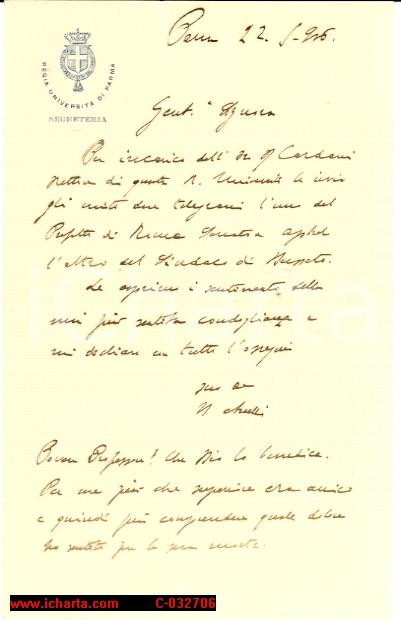 REGIA UNIVERSITÀ DI PARMA
SEGRETERIA
Parma 22. 906.
Gent.
Per incarico dell' Cardani
di questa R. Università le invio
gli uniti due telegrammi l'uno del
di Roma
l'altro del Sindaco di Busseto.
Le i sentimenti della
mia più sentita condoglianza e
mi dichiaro con tutto l'ossequio
suo
Povero Professore! Che Dio lo benedica.
Per me più che superiore era amico
e quindi può comprendere quale dolore
ho sentito per la sua morte.
www.icharta.com C-032706